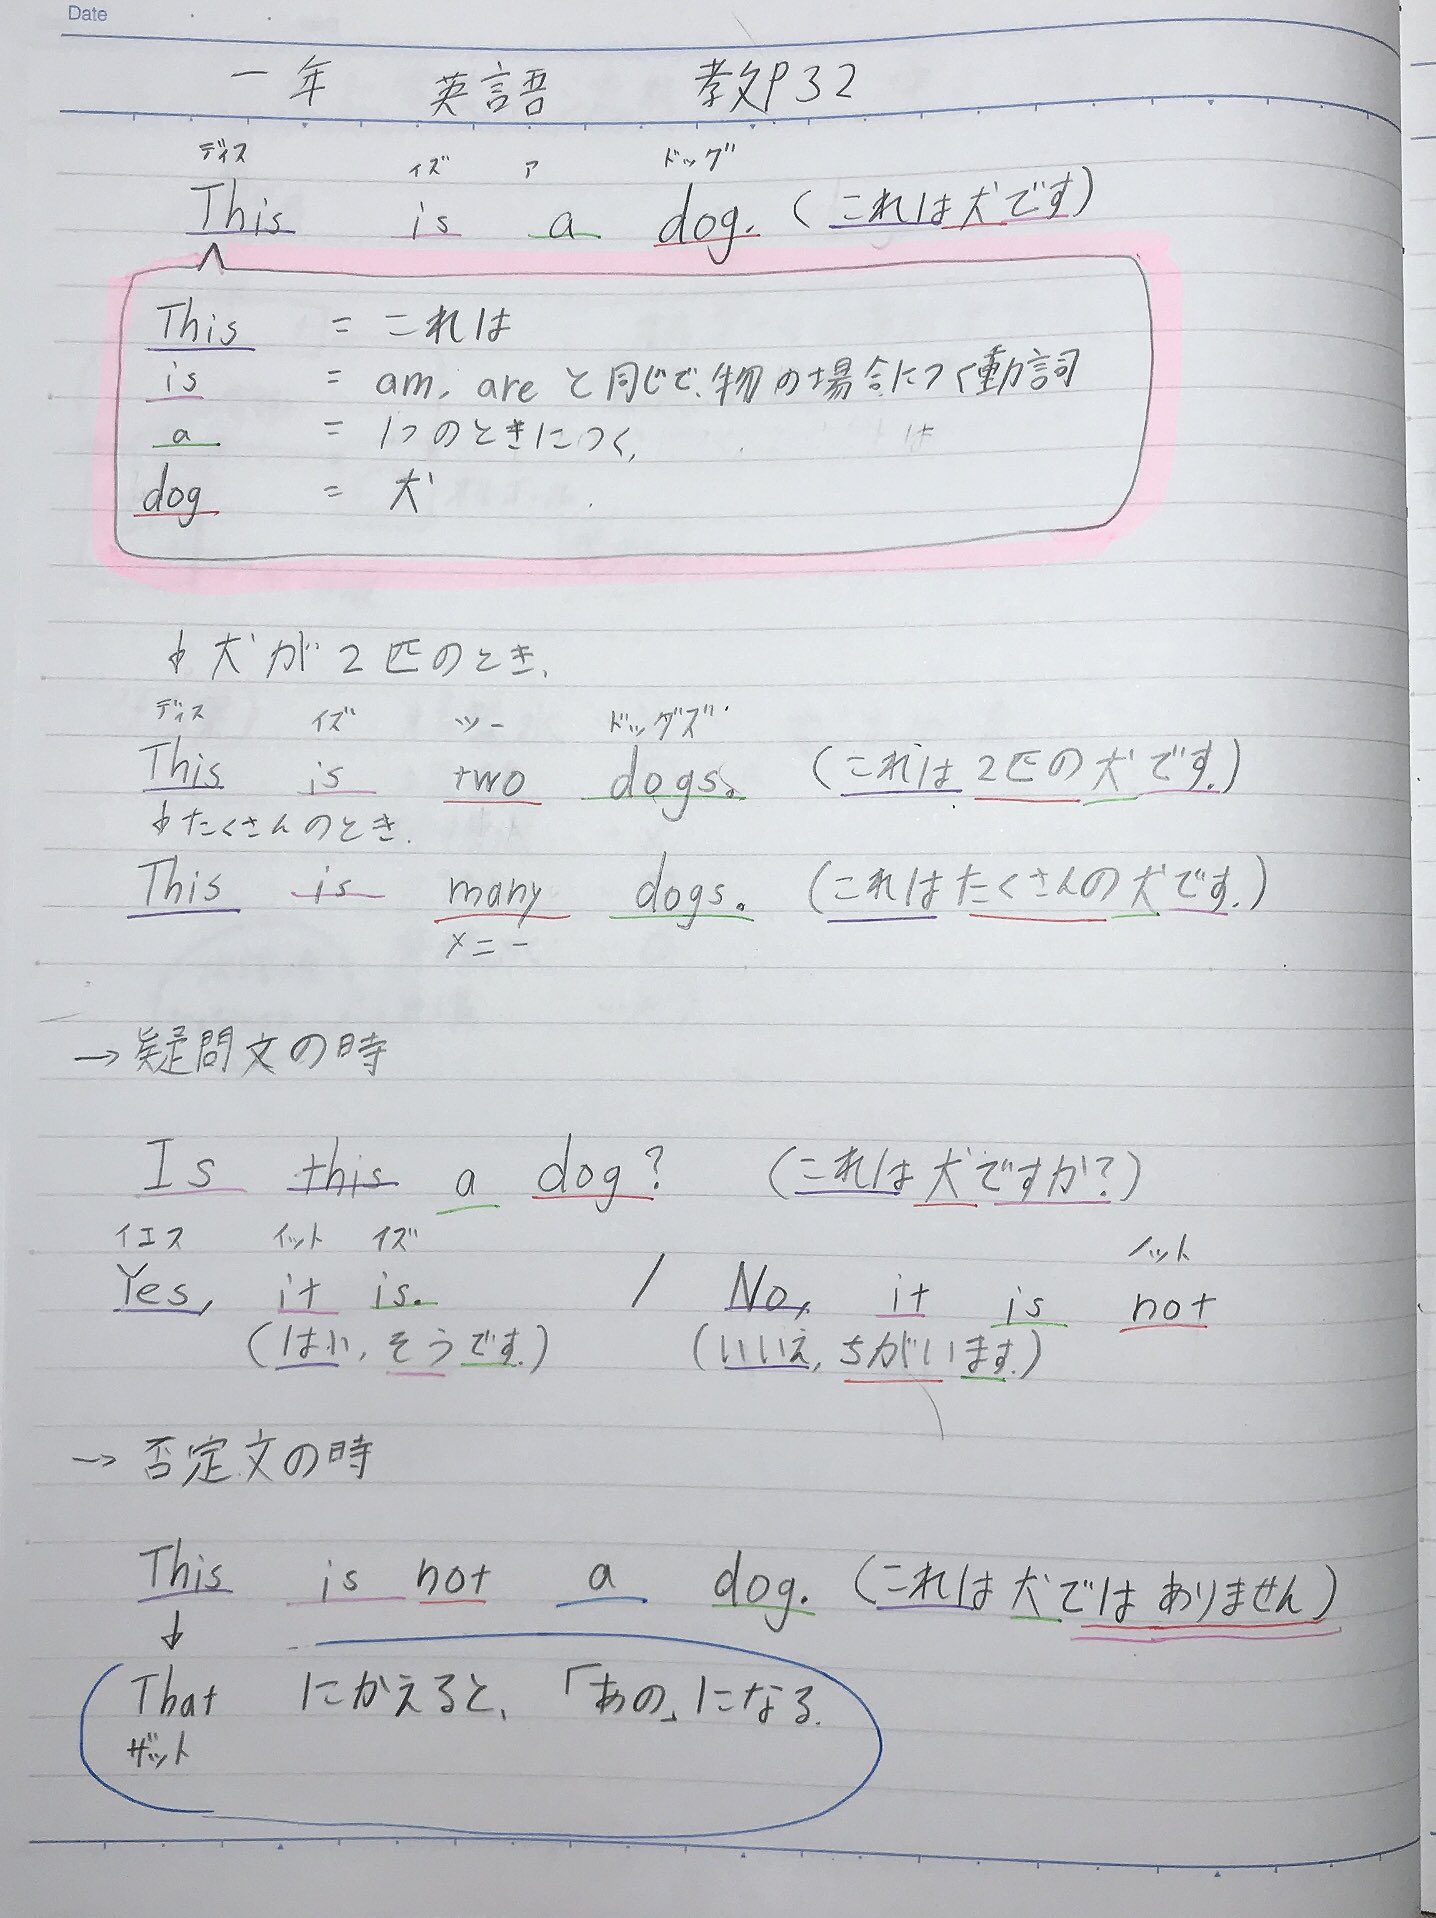 Date
一年 英語 教P32
ディス イズ ア ドッグ
This is a dog. (これは犬です)
This = これは
is = am, are と同じで、物の場合につく動詞
a = 1つのときにつく、
dog = 犬
↓犬が2匹のとき、
ディス イズ ツー ドッグズ
This is two dogs. (これは2匹の犬です。)
↓たくさんのとき.
This is many dogs. (これはたくさんの犬です.)
メニー
→疑問文の時
Is this a dog? (これは犬ですか?)
イエス イット イズ ノット
Yes, it is. / No, it is not
(はい、そうです.) (いいえ、ちがいます.)
→否定文の時
This is not a dog. (これは犬ではありません)
↓
That にかえると、「あの」になる.
ザット